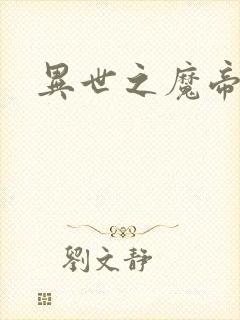 異世之魔帝
劉文靜